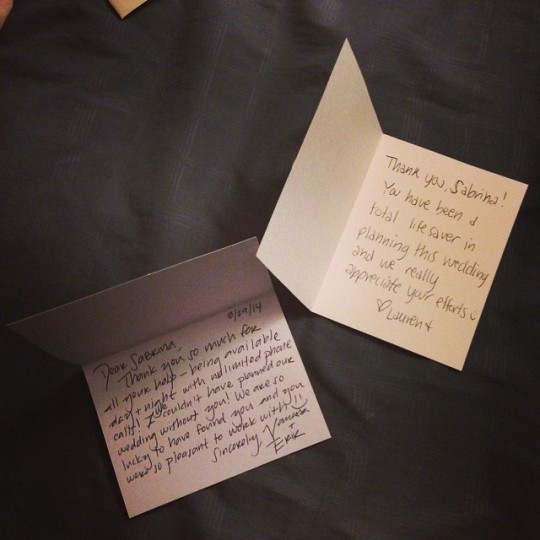 Dear Sabrina,
Thank you so much for
all your help - being available
day + night with unlimited phone
calls! We couldn't have planned our
wedding without you! We are so
lucky to have found you and you
were so pleasant to work with!!
Sincerely, Vanessa
+
Erik
Thank you, Sabrina!
You have been a
total lifesaver in
planning this wedding
and we really
appreciate your efforts
♡ Lauren +